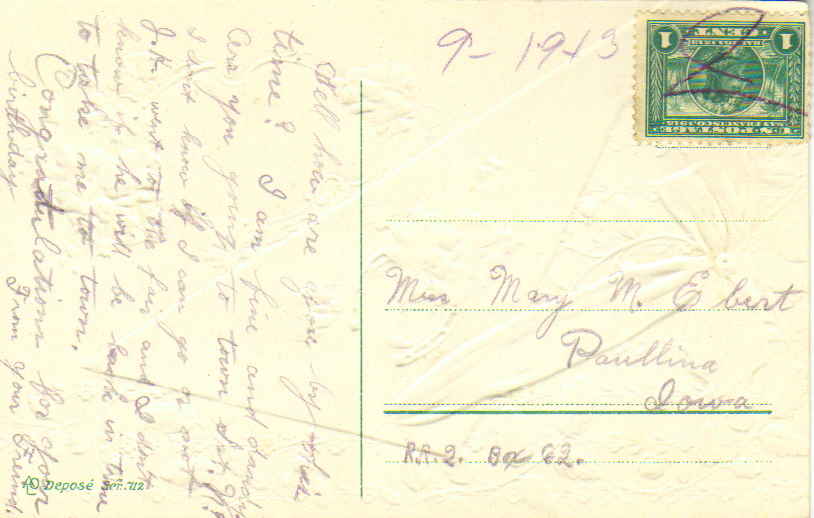 Well how are you by this
time? I am fine and dandy
Are you going to town Sat. ?
I don't know if I can go or not
J.H. went to the fair and I don't
know if he will be back in time
to take me to town.
Congratulations for your
birthday
From your Friend.
9 - 1913
U.S. POSTAGE
SAN FRANCISCO
1 CENT 1
Miss Mary M. Ebert
Paullina
Iowa
R.R. 2. Bx 62.
Deposé Ser. 112